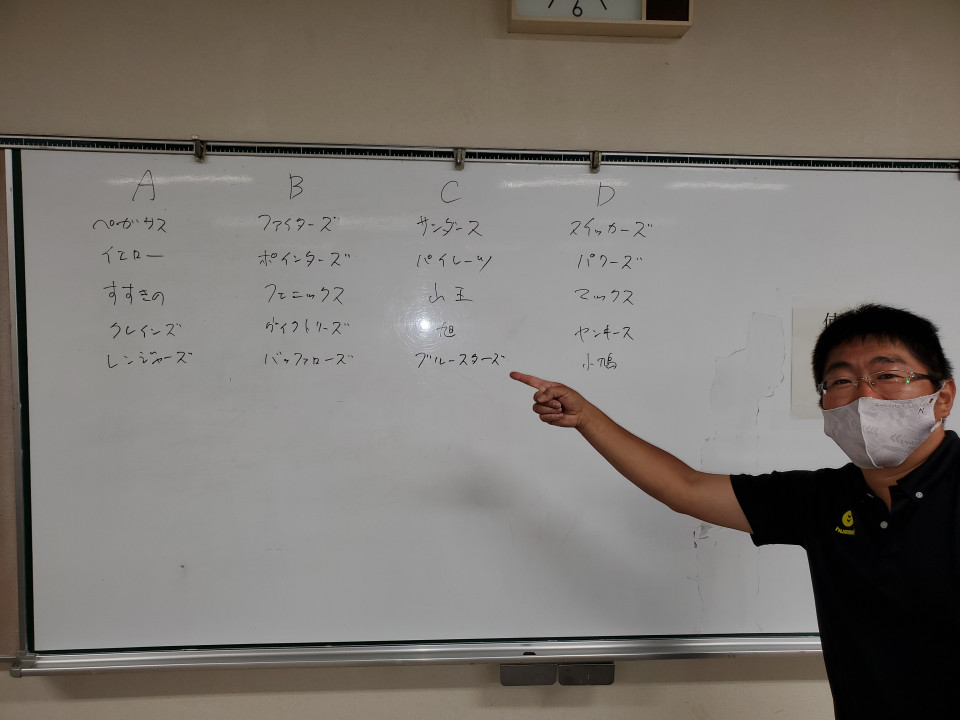 6
A B C D
ペガサス ファイターズ サンダース スイッカーズ
イエロー ポインターズ パイレーツ パワーズ
すすきの フェニックス 山王 マックス
クレインズ ビクトリーズ 旭 ヤンキース
レンジャーズ バッファローズ ブルースターズ 小鳩
使
hummel